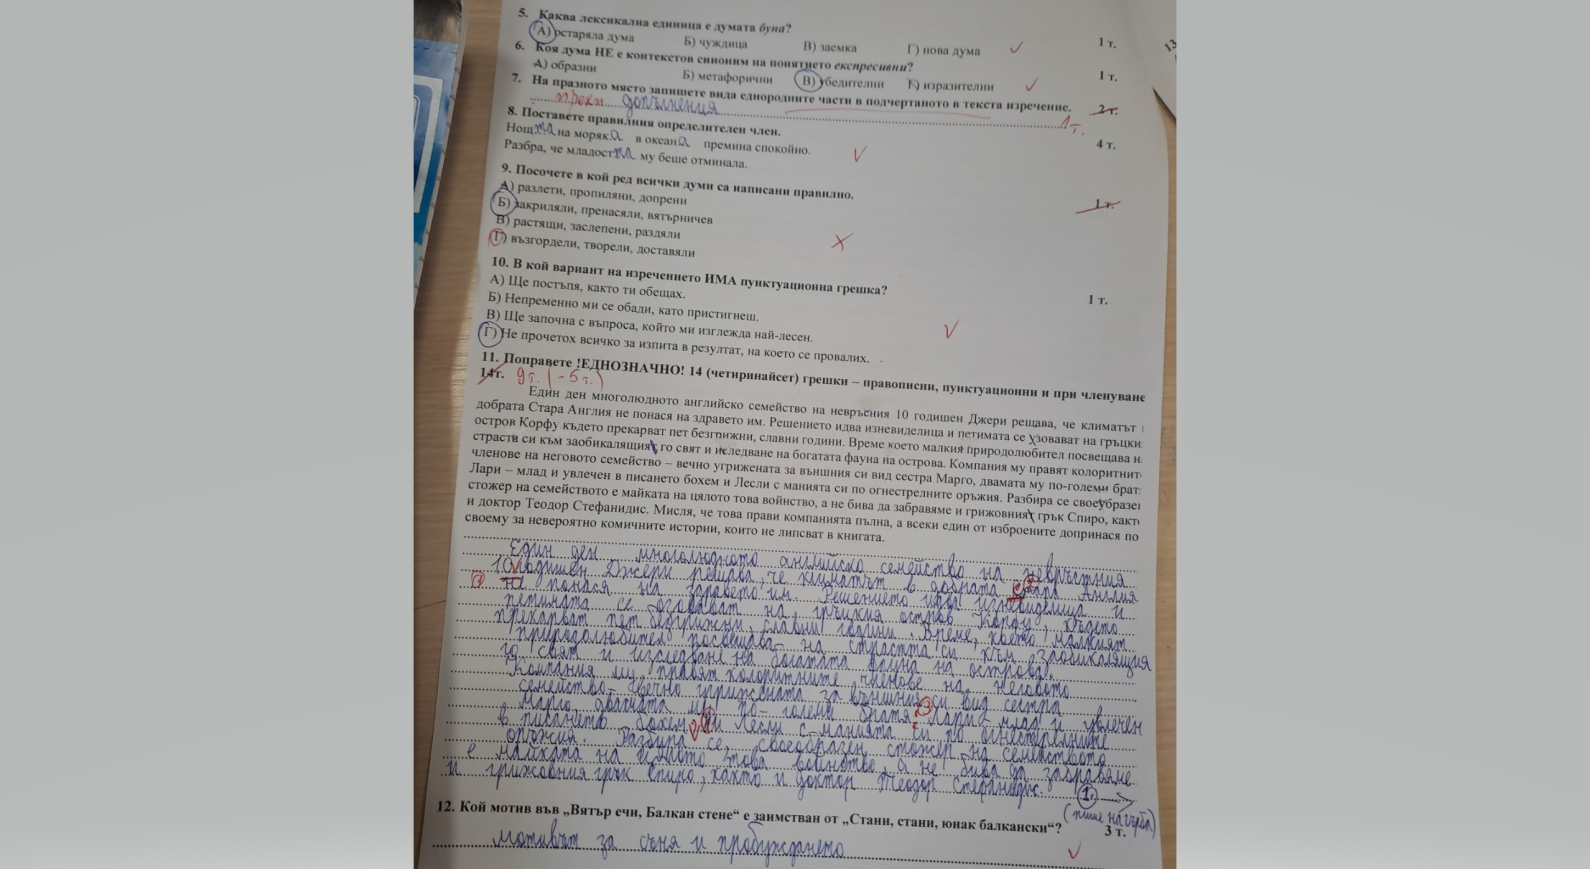 5. Каква лексикална единица е думата буна?
А) остаряла дума Б) чуждица В) заемка Г) нова дума 1 т.
6. Коя дума НЕ е контекстов синоним на понятието експресивни?
А) образни Б) метафорични В) убедителни Г) изразителни 1 т.
7. На празното място запишете вида еднородните части в подчертаното в текста изречение. 2 т.
преки допълнения 1 т.
8. Поставете правилния определителен член. 4 т.
Нощта на моряка в океана премина спокойно.
Разбра, че младостта му беше отминала.
9. Посочете в кой ред всички думи са написани правилно. 1 т.
А) разлети, пропиляни, допрени
Б) закриляли, пренасяли, вятърничев
В) растящи, заслепени, раздяли
Г) възгордели, творели, доставяли
10. В кой вариант на изречението ИМА пунктуационна грешка? 1 т.
А) Ще постъпя, както ти обещах.
Б) Непременно ми се обади, като пристигнеш.
В) Ще започна с въпроса, който ми изглежда най-лесен.
Г) Не прочетох всичко за изпита в резултат, на което се провалих.
11. Поправете !ЕДНОЗНАЧНО! 14 (четиринайсет) грешки – правописни, пунктуационни и при членуване
14т. 9 т. (-5 т.)
Един ден многолюдното английско семейство на невръсния 10 годишен Джери решава, че климатът
добрата Стара Англия не понася на здравето им. Решението идва изневиделица и петимата се узовават на гръцки
остров Корфу където прекарват пет безгрижни, славни години. Време което малкия природолюбител посвещава н
страста си към заобикалящият го свят и иследване на богатата фауна на острова. Компания му правят колоритнит
членове на неговото семейство – вечно угрижената за външния си вид сестра Марго, двамата му по-големи брат
Лари – млад и увлечен в писането бохем и Лесли с манията си по огнестрелните оръжия. Разбира се своеубразе
стожер на семейството е майката на цялото това войнство, а не бива да забравяме и грижовният грък Спиро, какт
и доктор Теодор Стефанидис. Мисля, че това прави компанията пълна, а всеки един от изброените допринася по
своему за невероятно комичните истории, които не липсват в книгата.
Един ден многолюдното английско семейство на невръстния
10 годишен Джери решава, че климатът в добрата стара Англия
не понася на здравето им. Решението идва изневиделица и
петимата се озовават на гръцкия остров Корфу, където
прекарват пет безгрижни, славни години. Време, което малкият
природолюбител посвещава на страстта си към заобикалящия
го свят и изследване на богатата фауна на острова.
Компания му правят колоритните членове на неговото
семейство – вечно угрижената за външния си вид сестра
Марго, двамата му по-големи братя Лари – млад и увлечен
в писането бохем и Лесли с манията си по огнестрелните
оръжия. Разбира се, своеобразен стожер на семейството
е майката на цялото това войнство, а не бива да забравяме
и грижовния грък Спиро, както и доктор Теодор Стефанидис. 1.
(пише на гърба)
12. Кой мотив във „Вятър ечи, Балкан стене“ е заимстван от „Стани, стани, юнак балкански“? 3 т.
мотивът за съня и пробуждането